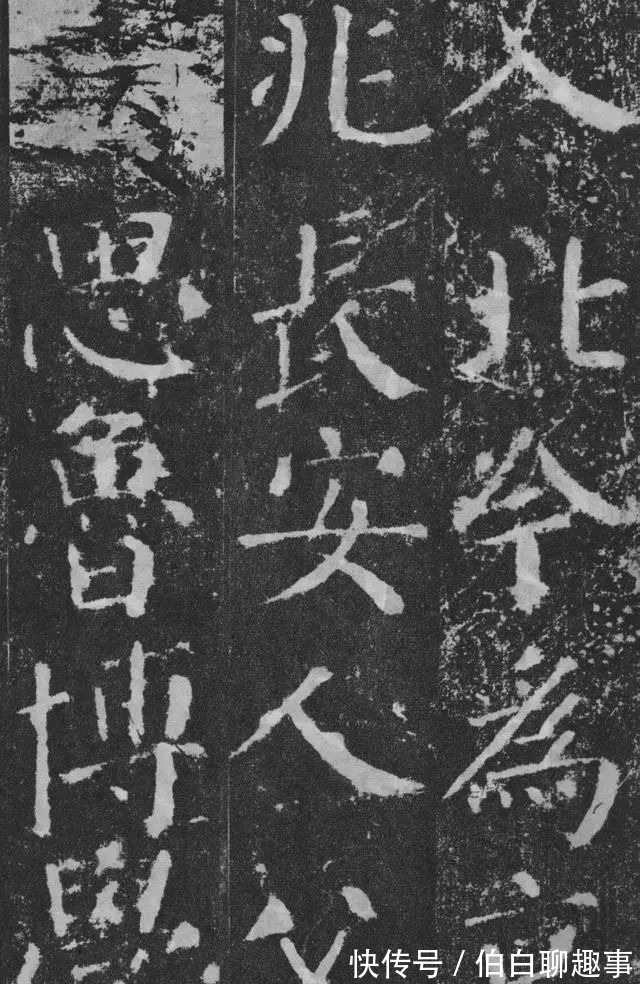 入北今為京
兆長安人父
思魯博學
快传号 / 伯白聊趣事